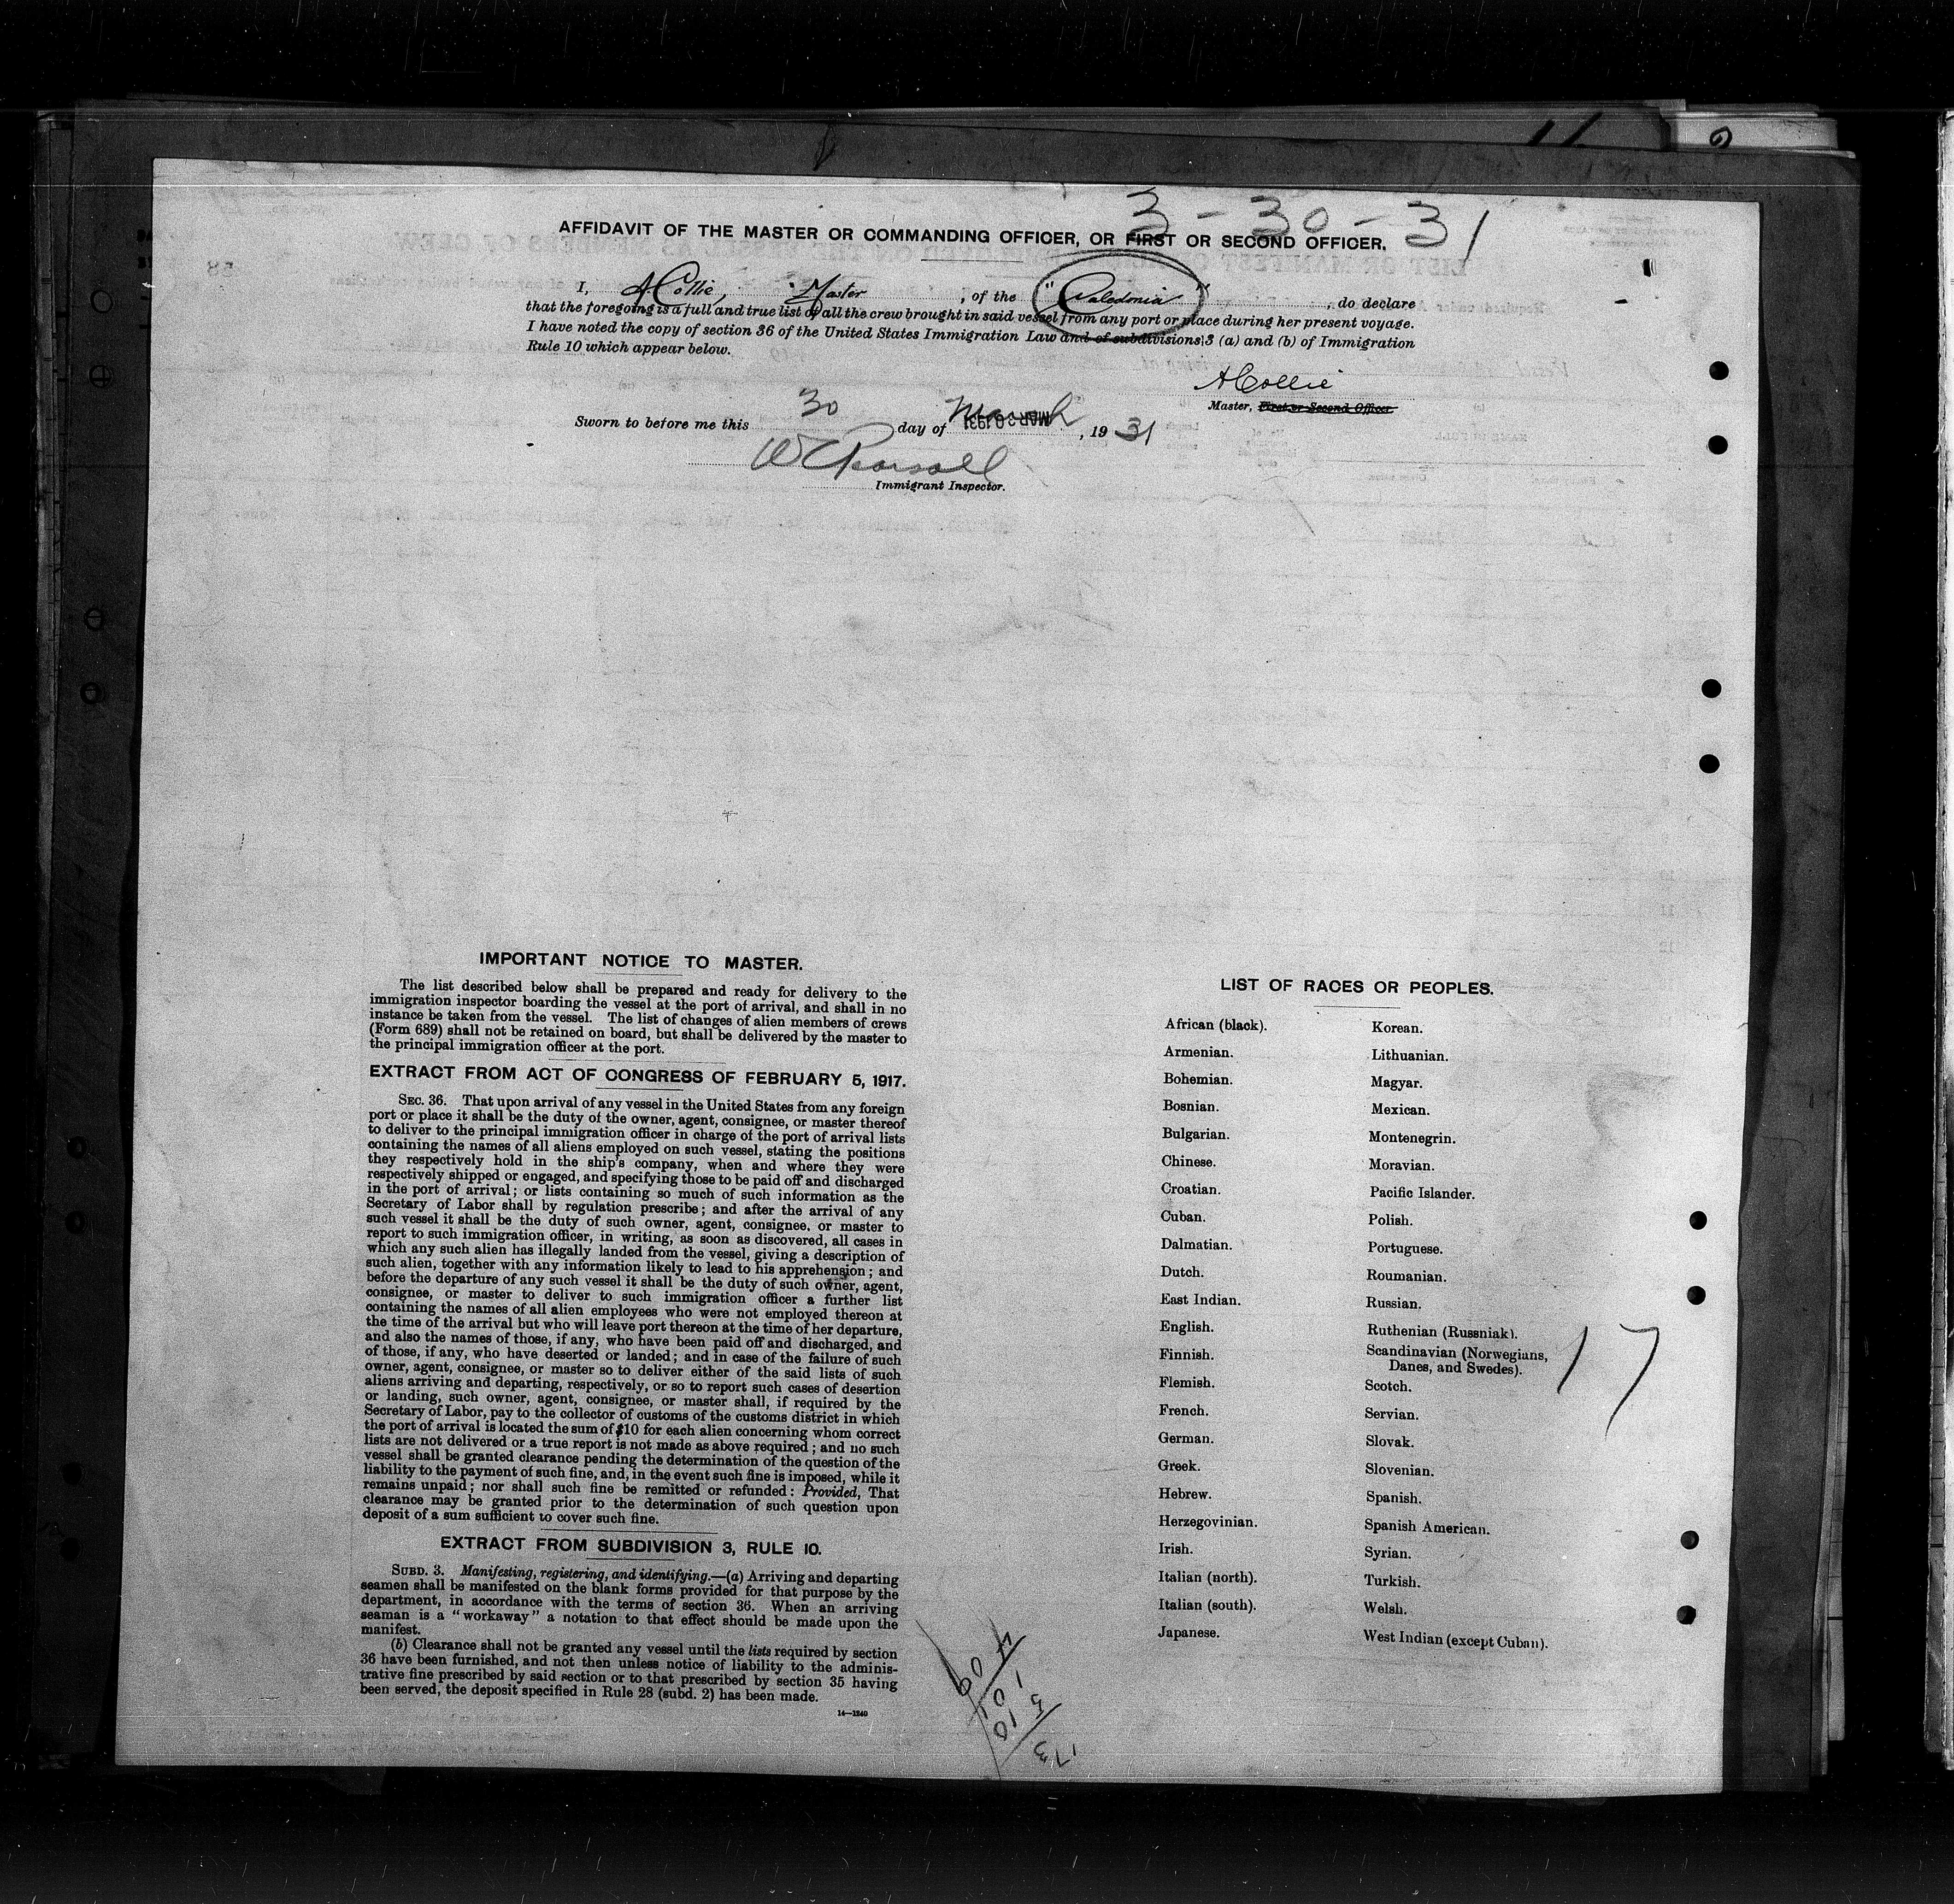 3-30-31
AFFIDAVIT OF THE MASTER OR COMMANDING OFFICER, OR FIRST OR SECOND OFFICER.
I, A Collie, Master, of the "Caledonia", do declare
that the foregoing is a full and true list of all the crew brought in said vessel from any port or place during her present voyage.
I have noted the copy of section 36 of the United States Immigration Law and of subdivisions 3 (a) and (b) of Immigration
Rule 10 which appear below.
A Collie
Master, First or Second Officer.
Sworn to before me this 30 day of March, 19 31
MAR 30 1931
W Pearsall
Immigrant Inspector.
IMPORTANT NOTICE TO MASTER.
The list described below shall be prepared and ready for delivery to the
immigration inspector boarding the vessel at the port of arrival, and shall in no
instance be taken from the vessel. The list of changes of alien members of crews
(Form 689) shall not be retained on board, but shall be delivered by the master to
the principal immigration officer at the port.
EXTRACT FROM ACT OF CONGRESS OF FEBRUARY 5, 1917.
SEC. 36. That upon arrival of any vessel in the United States from any foreign
port or place it shall be the duty of the owner, agent, consignee, or master thereof
to deliver to the principal immigration officer in charge of the port of arrival lists
containing the names of all aliens employed on such vessel, stating the positions
they respectively hold in the ship's company, when and where they were
respectively shipped or engaged, and specifying those to be paid off and discharged
in the port of arrival; or lists containing so much of such information as the
Secretary of Labor shall by regulation prescribe; and after the arrival of any
such vessel it shall be the duty of such owner, agent, consignee, or master to
report to such immigration officer, in writing, as soon as discovered, all cases in
which any such alien has illegally landed from the vessel, giving a description of
such alien, together with any information likely to lead to his apprehension; and
before the departure of any such vessel it shall be the duty of such owner, agent,
consignee, or master to deliver to such immigration officer a further list
containing the names of all alien employees who were not employed thereon at
the time of the arrival but who will leave port thereon at the time of her departure,
and also the names of those, if any, who have been paid off and discharged, and
of those, if any, who have deserted or landed; and in case of the failure of such
owner, agent, consignee, or master so to deliver either of the said lists of such
aliens arriving and departing, respectively, or so to report such cases of desertion
or landing, such owner, agent, consignee, or master shall, if required by the
Secretary of Labor, pay to the collector of customs of the customs district in which
the port of arrival is located the sum of $10 for each alien concerning whom correct
lists are not delivered or a true report is not made as above required; and no such
vessel shall be granted clearance pending the determination of the question of the
liability to the payment of such fine, and, in the event such fine is imposed, while it
remains unpaid; nor shall such fine be remitted or refunded: Provided, That
clearance may be granted prior to the determination of such question upon
deposit of a sum sufficient to cover such fine.
EXTRACT FROM SUBDIVISION 3, RULE 10.
SUBD. 3. Manifesting, registering, and identifying.—(a) Arriving and departing
seamen shall be manifested on the blank forms provided for that purpose by the
department, in accordance with the terms of section 36. When an arriving
seaman is a "workaway" a notation to that effect should be made upon the
manifest.
(b) Clearance shall not be granted any vessel until the lists required by section
36 have been furnished, and not then unless notice of liability to the adminis-
trative fine prescribed by said section or to that prescribed by section 35 having
been served, the deposit specified in Rule 28 (subd. 2) has been made.
14—1240
LIST OF RACES OR PEOPLES.
African (black).
Armenian.
Bohemian.
Bosnian.
Bulgarian.
Chinese.
Croatian.
Cuban.
Dalmatian.
Dutch.
East Indian.
English.
Finnish.
Flemish.
French.
German.
Greek.
Hebrew.
Herzegovinian.
Irish.
Italian (north).
Italian (south).
Japanese.
Korean.
Lithuanian.
Magyar.
Mexican.
Montenegrin.
Moravian.
Pacific Islander.
Polish.
Portuguese.
Roumanian.
Russian.
Ruthenian (Russniak).
Scandinavian (Norwegians,
Danes, and Swedes).
Scotch.
Servian.
Slovak.
Slovenian.
Spanish.
Spanish American.
Syrian.
Turkish.
Welsh.
West Indian (except Cuban).
17